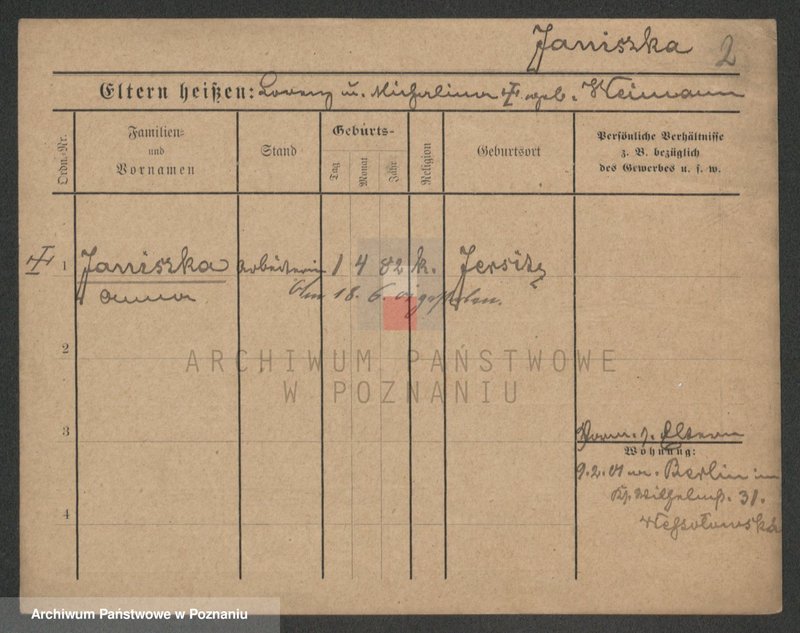 Janiszka 2
Eltern heißen: Lorenz u. Michalina geb. Heimann
Ordn.-Nr.
Familien-
und
Vornamen
Stand
Geburts-
Tag
Monat
Jahr
Religion
Geburtsort
Persönliche Verhältnisse
z. B. bezüglich
des Gewerbes u. s. w.
1 Janiszka Arbeiterin 1 4 82 k. Jersitz
Anna
Am 18. 6. gestorben.
2
ARCHIWUM PAŃSTWOWE
W POZNANIU
3
Eltern
Wohnung:
9. 2. 01 Berlin
31.
4
Archiwum Państwowe w Poznaniu